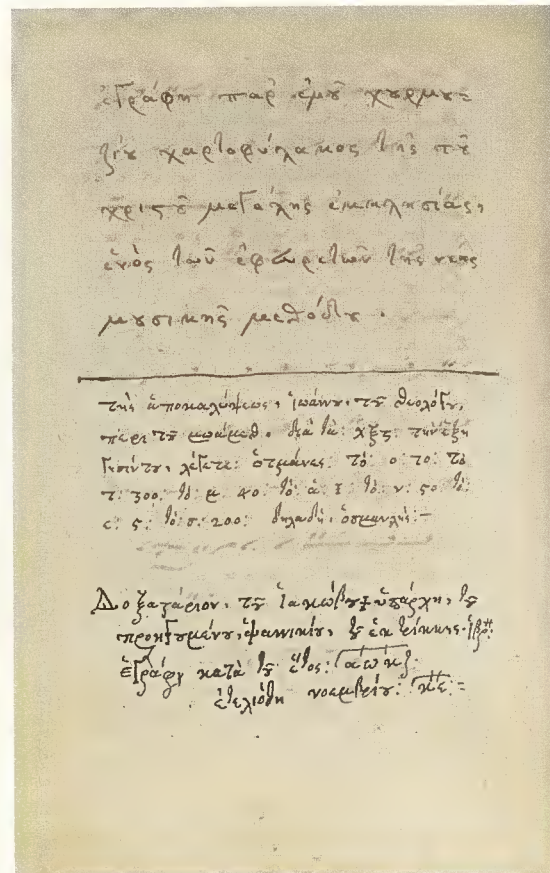 ἐγράφη παρ' ἐμοῦ χουρμου=
ζίου χαρτοφύλακος τῆς τοῦ
χριστοῦ μεγάλης ἐκκλησίας,
ἑνὸς τῶν ἐφευρετῶν τῆς νέας
μουσικῆς μεθόδου.
τῆς ἀποκαλύψεως, ἰωάννου, τοῦ θεολόγου,
περὶ τοῦ μωάμεθ. χξϛ: τὴν ἐξή
λέγεται: ὀτμάνες: τὸ: ο: 70: τὸ
τ: 300: τὸ: μ: 40: τὸ: ά: 1: τὸ: ν: 50: τὸ:
ε: 5: τὸ: σ: 200: δηλαδὴ, ὀσμανλής:–
Δοξαστάριον, τοῦ ἰακώβου πρωτοψάλτου ὑπάρχει,
ἐκ τρίκκης.
ἐγράφη κατὰ τὸ ἔτος: αωκζ:
ἐτελιόθη νοεμβρίου: κε:=